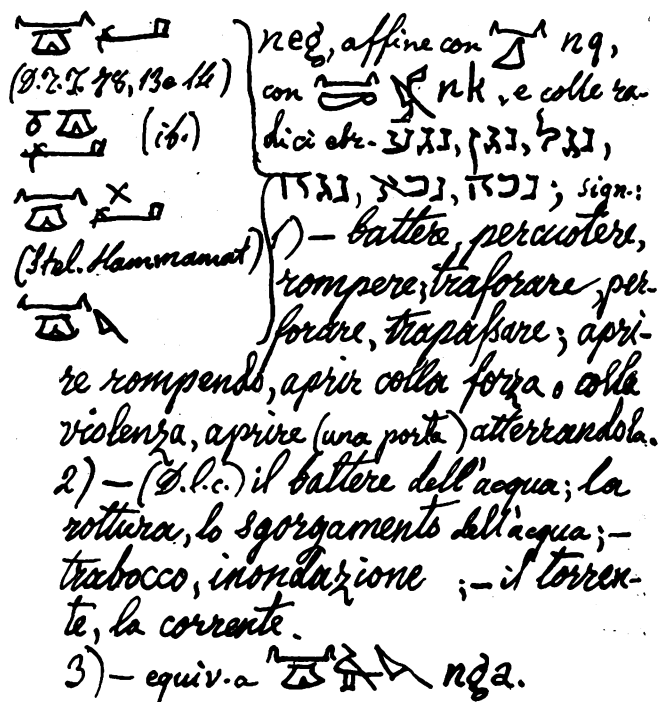 neg, affine con nq,
(D.T.I. 78, 13 e 14)
con nk, e colle ra-
(ib.)
dici ebr.- נגע, נגף,
נכא, נכה; sign.:
(Stel. Hammamat)
1) – battere, percuotere,
rompere; traforare, per-
forare, trapassare; apri-
re rompendo, aprir colla forza o colla
violenza, aprire (una porta) atterrandola.
2) – (D.l.c.) il battere dell'acqua; la
rottura, lo sgorgamento dell'acqua; –
trabocco, inondazione ; – il torren-
te, la corrente.
3) – equiv. a nga.